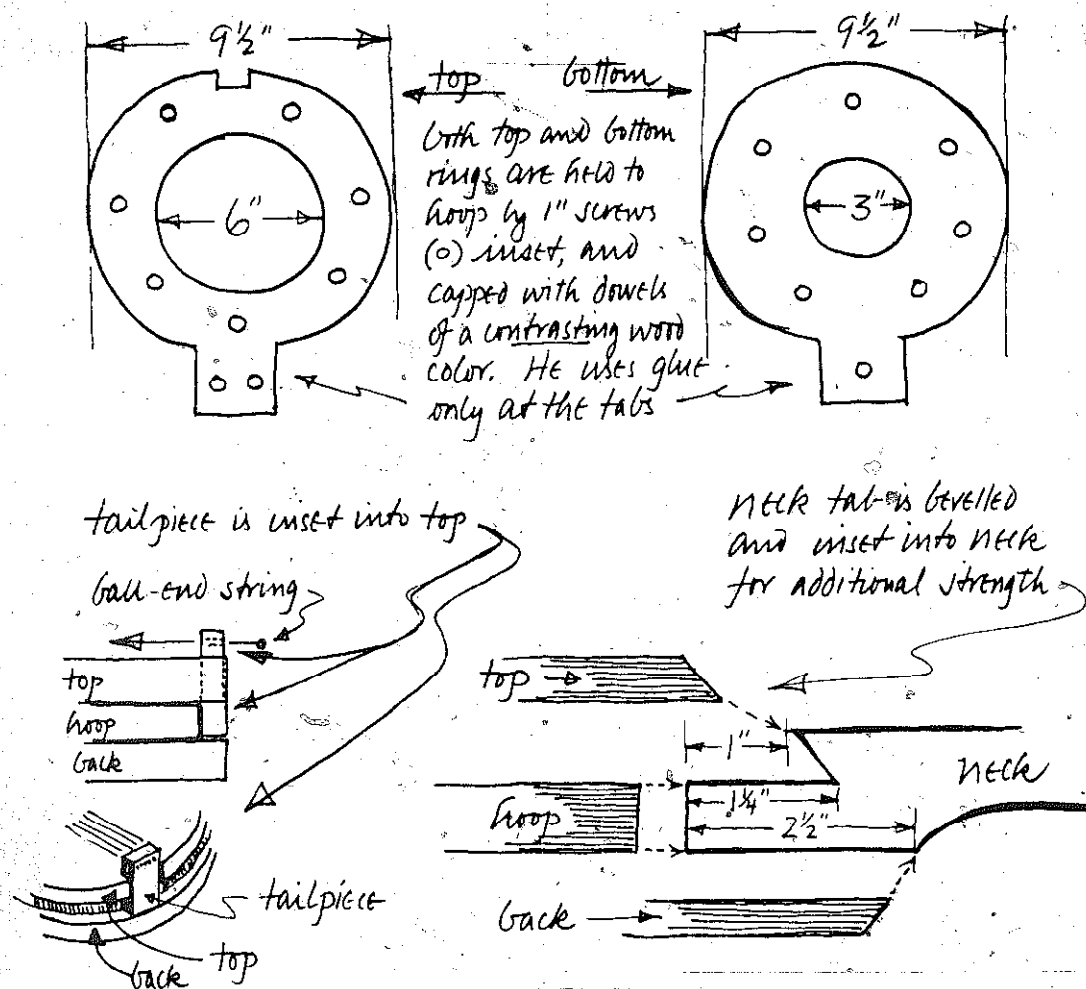 9½"
9½"
top
bottom
both top and bottom
rings are held to
hoop by 1" screws
(o) inset, and
capped with dowels
of a contrasting wood
color. He uses glue
only at the tabs
6"
3"
tailpiece is inset into top
ball-end string
top
hoop
back
tailpiece
top
back
neck tab is bevelled
and inset into neck
for additional strength
top
1"
neck
hoop
1¼"
2½"
back